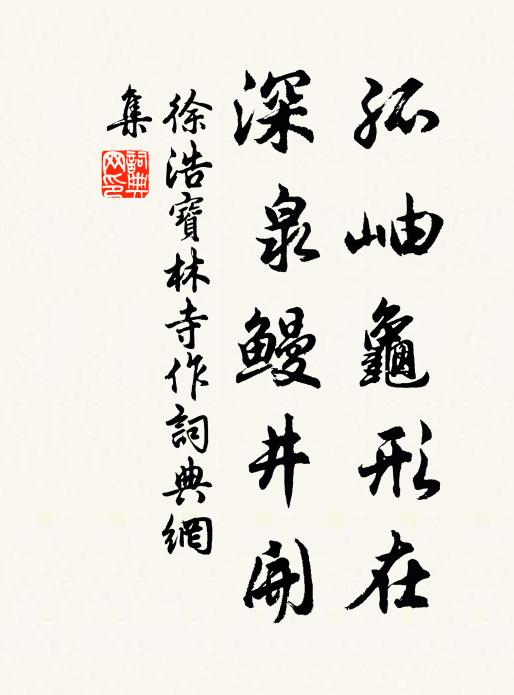 孤岫龜形在
深泉鰻井開
徐浩寶林寺作詞典網
集
詞典网印